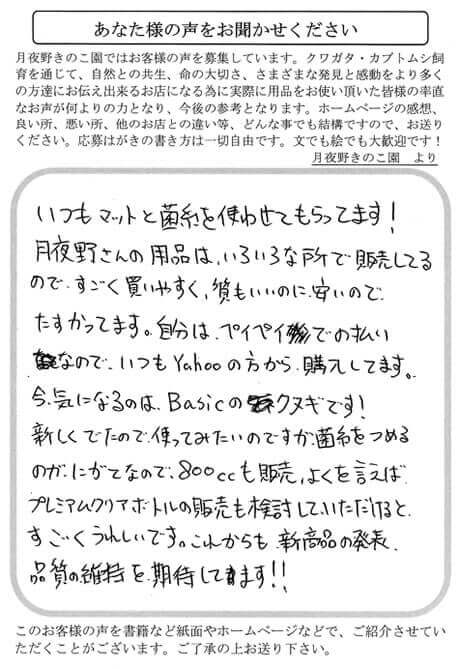 あなた様の声をお聞かせください
月夜野きのこ園ではお客様の声を募集しています。クワガタ・カブトムシ飼
育を通じて、自然との共生、命の大切さ、さまざまな発見と感動をより多く
の方達にお伝え出来るお店になる為に実際に用品をお使い頂いた皆様の率直
なお声が何よりの力となり、今後の参考となります。ホームページの感想、
良い所、悪い所、他のお店との違い等、どんな事でも結構ですので、お送り
ください。応募はがきの書き方は一切自由です。文でも絵でも大歓迎です！
月夜野きのこ園　より
いつもマットと菌糸を使わせてもらってます！
月夜野さんの用品は、いろいろな所で販売してる
ので、すごく買いやすく、質もいいのに、安いので
たすかってます。自分は、ペイペイでの払い
なので、いつもYahooの方から、購入してます。
今、気になるのは、Basicのクヌギです！
新しくでたので、使ってみたいのですが、菌糸をつめる
のが、にがてなので、800ccも販売、よくを言えば
プレミアムクリアボトルの販売も検討していただけると
すごくうれしいです。これからも、新商品の発表、
品質の維持を、期待してます！！
このお客様の声を書籍など紙面やホームページなどで、ご紹介させてい
ただくことがございます。ご了承の上お送り下さい。